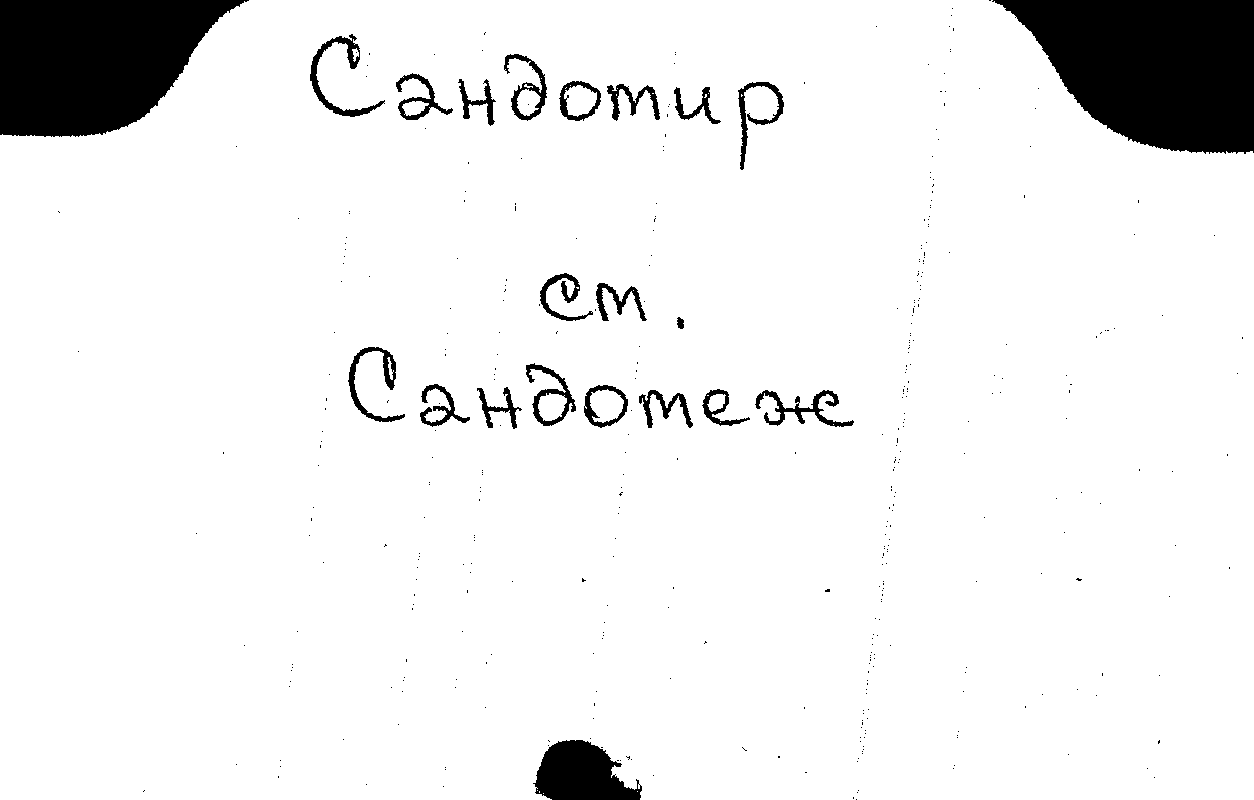 Сандотир
ст.
Сандотеже